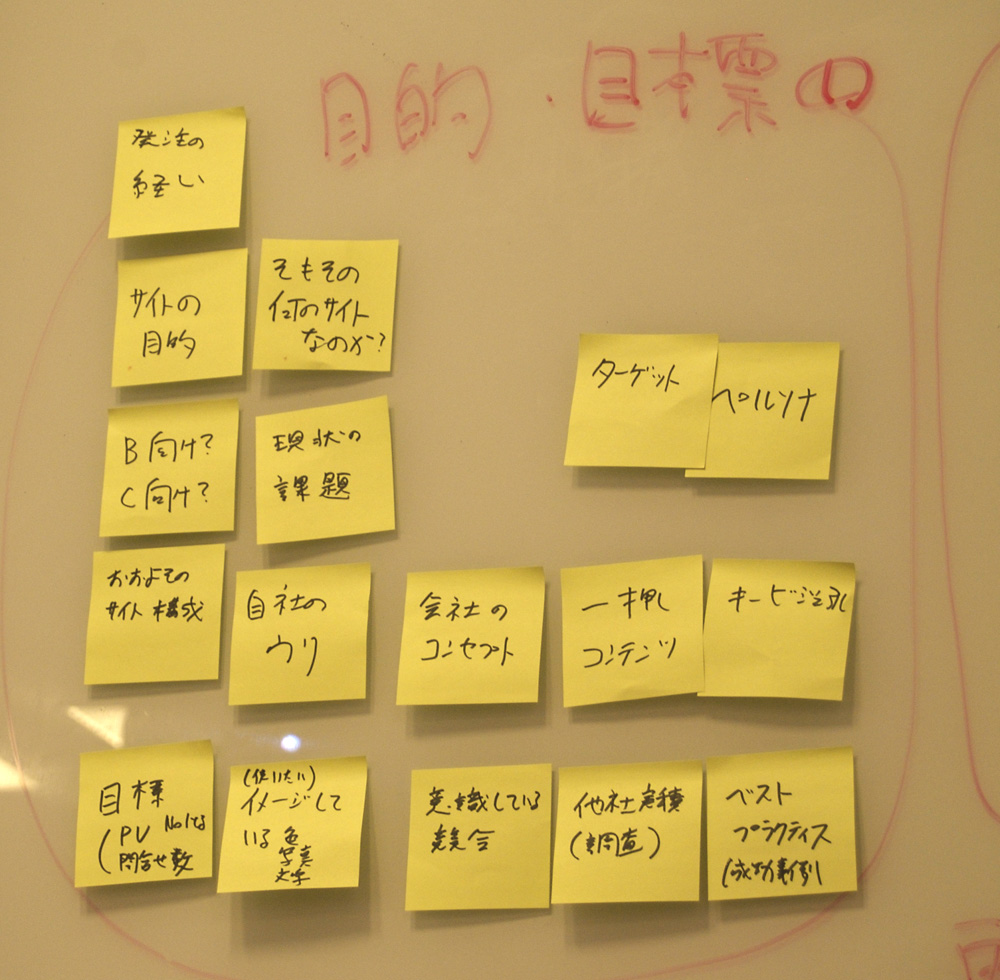 目的・目標の
発注の
経い
サイトの
目的
そもその
何のサイト
なのか?
ターゲット
ペルソナ
B向け?
C向け?
現状の
課題
おおよその
サイト構成
自社の
ウリ
会社の
コンセプト
一押し
コンテンツ
キービジュアル
目標
(PV No1な
問合せ数
(使いたい)
イメージして
いる色
写真
文字
意識している
競合
他社
(調査)
ベスト
プラクティス
(成功事例